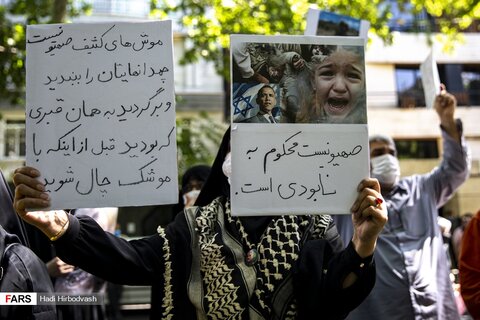 موش های کثیف صهیونیست
چمدانهایتان را ببندید
و برگردید به همان قبری
که بودید قبل از اینکه با
موشک چال شوید
صهیونیست محکوم به
نابودی است.
FARS
Hadi Hirbodvash